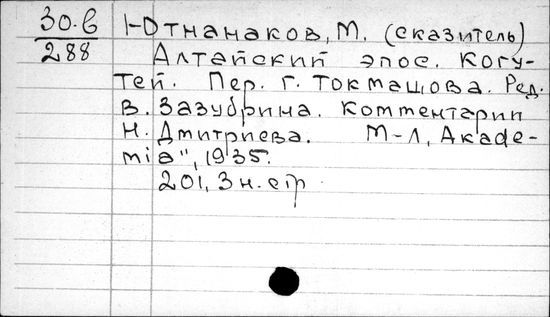 30.6
288
1-Отнанаков, М. (сказитель)
Алтайский эпос. Когу-
тей. Пер. Г. Токмашова. Ред.
В. Зазубрина. Комментарии
Н. Дмитриева. М-Л, Acade-
mia", 1935.
201, 3 н. стр.